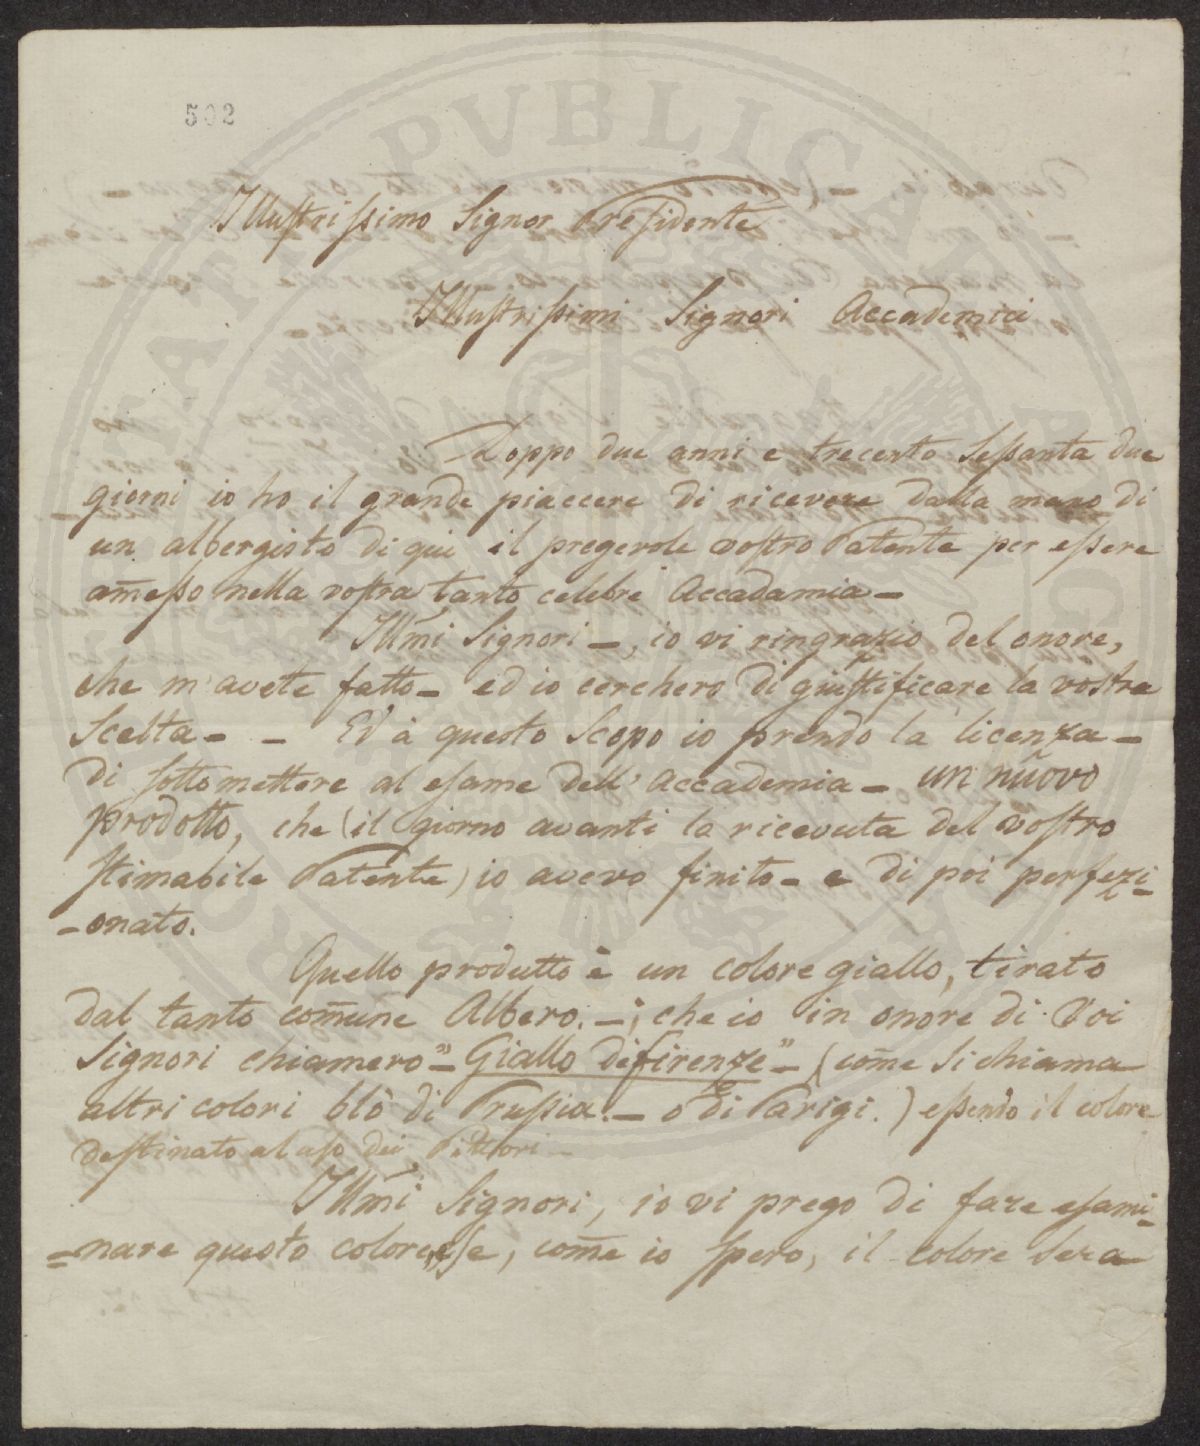 502
Illustrissimo Signor Presidente
Illustrissimi Signori Accademici
Doppo due anni e trecento Sessanta due
giorni io ho il grande piaccere di ricevere dalla mano di
un albergisto di qui il pregevole vostro Patente per essere
am̄esso nella vostra tanto celebre Accadamia –
Illm̄i Signori –, io vi ringrazio del onore,
che m'avete fatto – ed io cerchero di giustificare la vostra
Scelta – – Ed à questo Scopo io prendo la licenza –
di sottomettere al esame dell'Accademia – un nuovo
prodotto, che (il giorno avanti la riceveuta del vostro
Stimabile Patente) io avevo finito – e di poi perfezi-
-onato.
Quello produtto è un colore giallo, tirato
dal tanto com̄une Albero. –; che io in onore di Voi
Signori chiamero "– Giallo di firenze" – (com̄e Si chiama
altri colori blò di Prussia. – o di Parigi.) essendo il colore
destinato al uso dei Pittori –
Illm̄i Signori, io vi prego di fare esami-
=nare questo colore, e se, com̄e io spero, il colore Sera